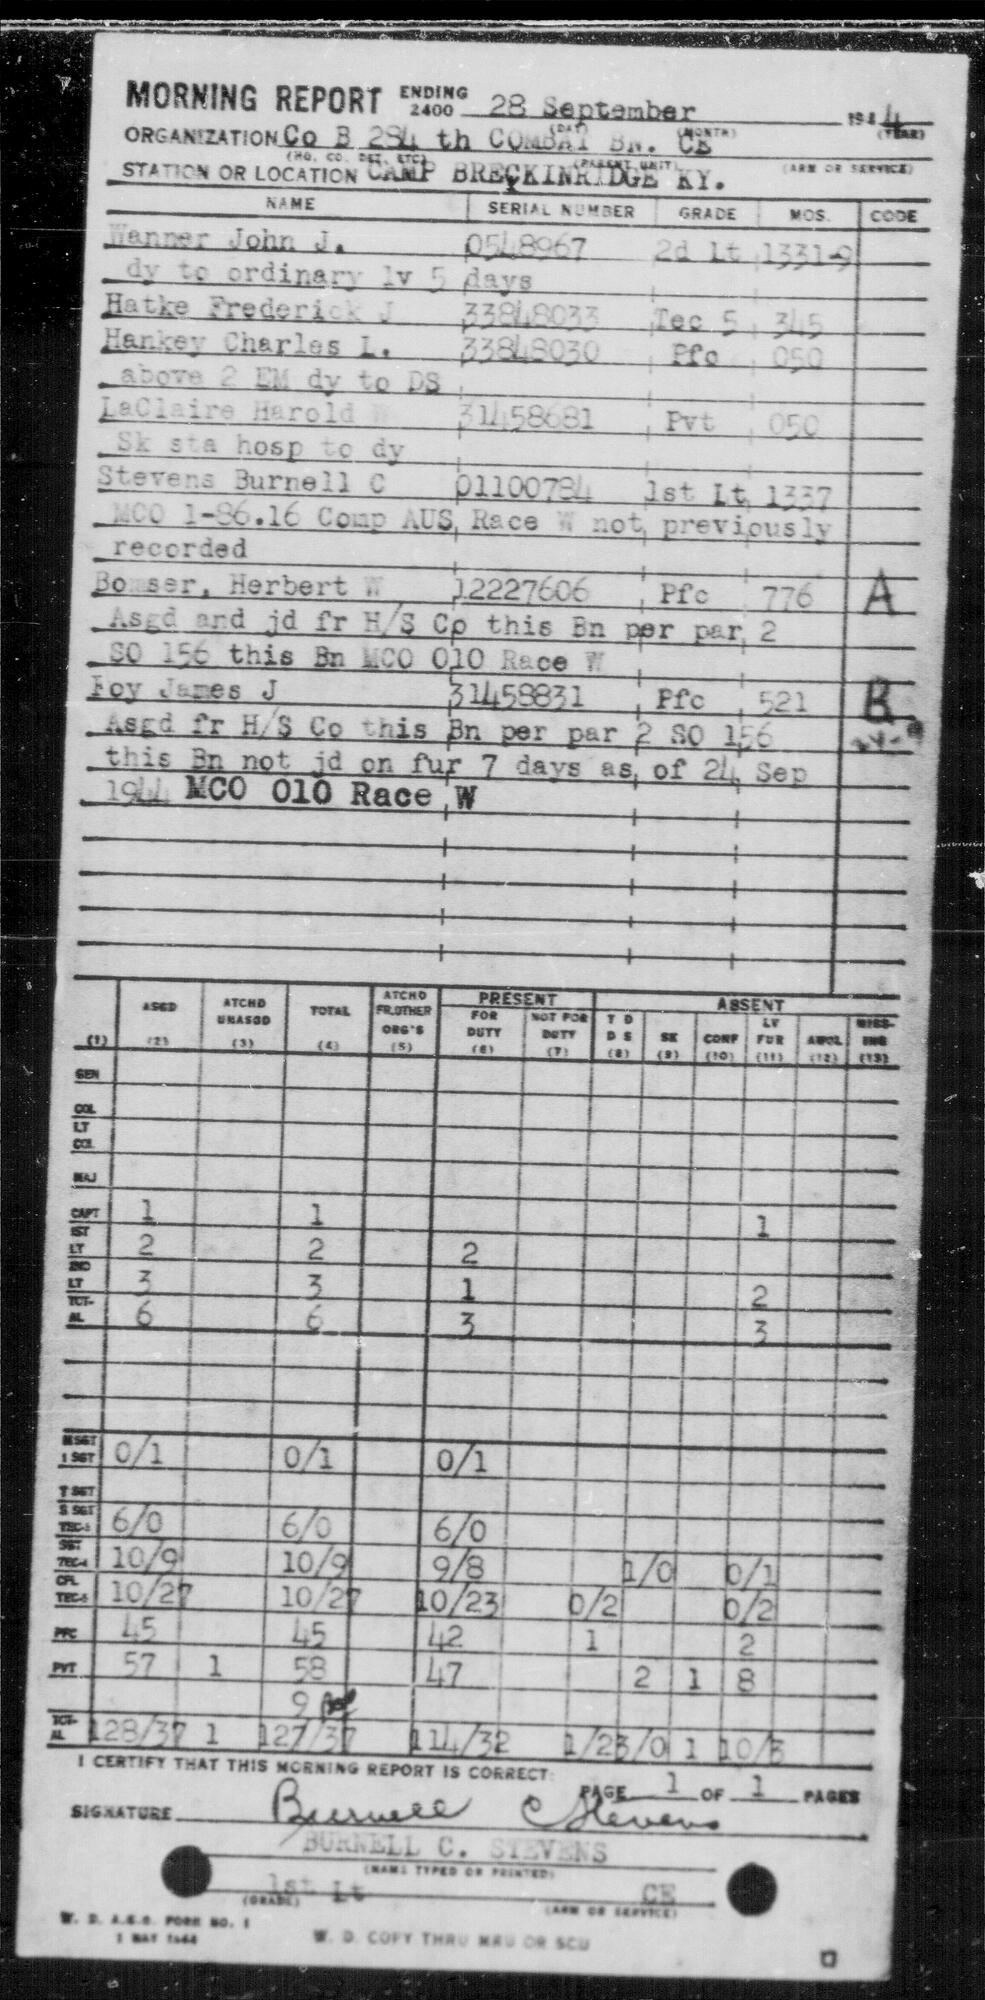 MORNING REPORT ENDING 2400 28 September 1944
(DAY) (MONTH) (YEAR)
ORGANIZATION Co B 284 th COMBAT BN. CE
(HQ. CO. DET. ETC) (PARENT UNIT) (ARM OR SERVICE)
STATION OR LOCATION CAMP BRECKINRIDGE KY.
NAME SERIAL NUMBER GRADE MOS. CODE
Wanner John J. 0548967 2d Lt 1331-9
dy to ordinary lv 5 days
Hatke Frederick J 33848033 Tec 5 345
Hankey Charles L. 33848030 Pfc 050
above 2 EM dy to DS
LaClaire Harold W 31458681 Pvt 050
Sk sta hosp to dy
Stevens Burnell C 01100784 1st Lt 1337
MCO 1-86.16 Comp AUS Race W not previously
recorded
Bomser, Herbert W 12227606 Pfc 776 A
Asgd and jd fr H/S Co this Bn per par 2
SO 156 this Bn MCO 010 Race W
Foy James J 31458831 Pfc 521 B
Asgd fr H/S Co this Bn per par 2 SO 156
this Bn not jd on fur 7 days as of 24 Sep
1944 MCO 010 Race W
ASGD ATCHD UNASGD TOTAL ATCHD FR.OTHER ORG'S PRESENT FOR DUTY NOT FOR DUTY ABSENT T D D S SK CONF LV FUR AWOL MISS-ING
(1) (2) (3) (4) (5) (6) (7) (8) (9) (10) (11) (12) (13)
GEN
COL
LT COL
MAJ
CAPT 1 1 1
1ST LT 2 2 2
2ND LT 3 3 1 2
TOT-AL 6 6 3 3
MSGT
1 SGT 0/1 0/1 0/1
T SGT
S SGT
TEC-3 6/0 6/0 6/0
SGT
TEC-4 10/9 10/9 9/8 1/0 0/1
CPL
TEC-5 10/27 10/27 10/23 0/2 0/2
PFC 45 45 42 1 2
PVT 57 1 58 47 2 1 8
9
TOT-AL 128/37 1 127/37 114/32 1/2 3/0 1 10/3
I CERTIFY THAT THIS MORNING REPORT IS CORRECT:
PAGE 1 OF 1 PAGES
SIGNATURE Burnell C Stevens
BURNELL C. STEVENS
(NAME TYPED OR PRINTED)
1st Lt CE
(GRADE) (ARM OR SERVICE)
W. D. A.G.O. FORM NO. 1
1 MAY 1944
W. D. COPY THRU MRU OR SCU